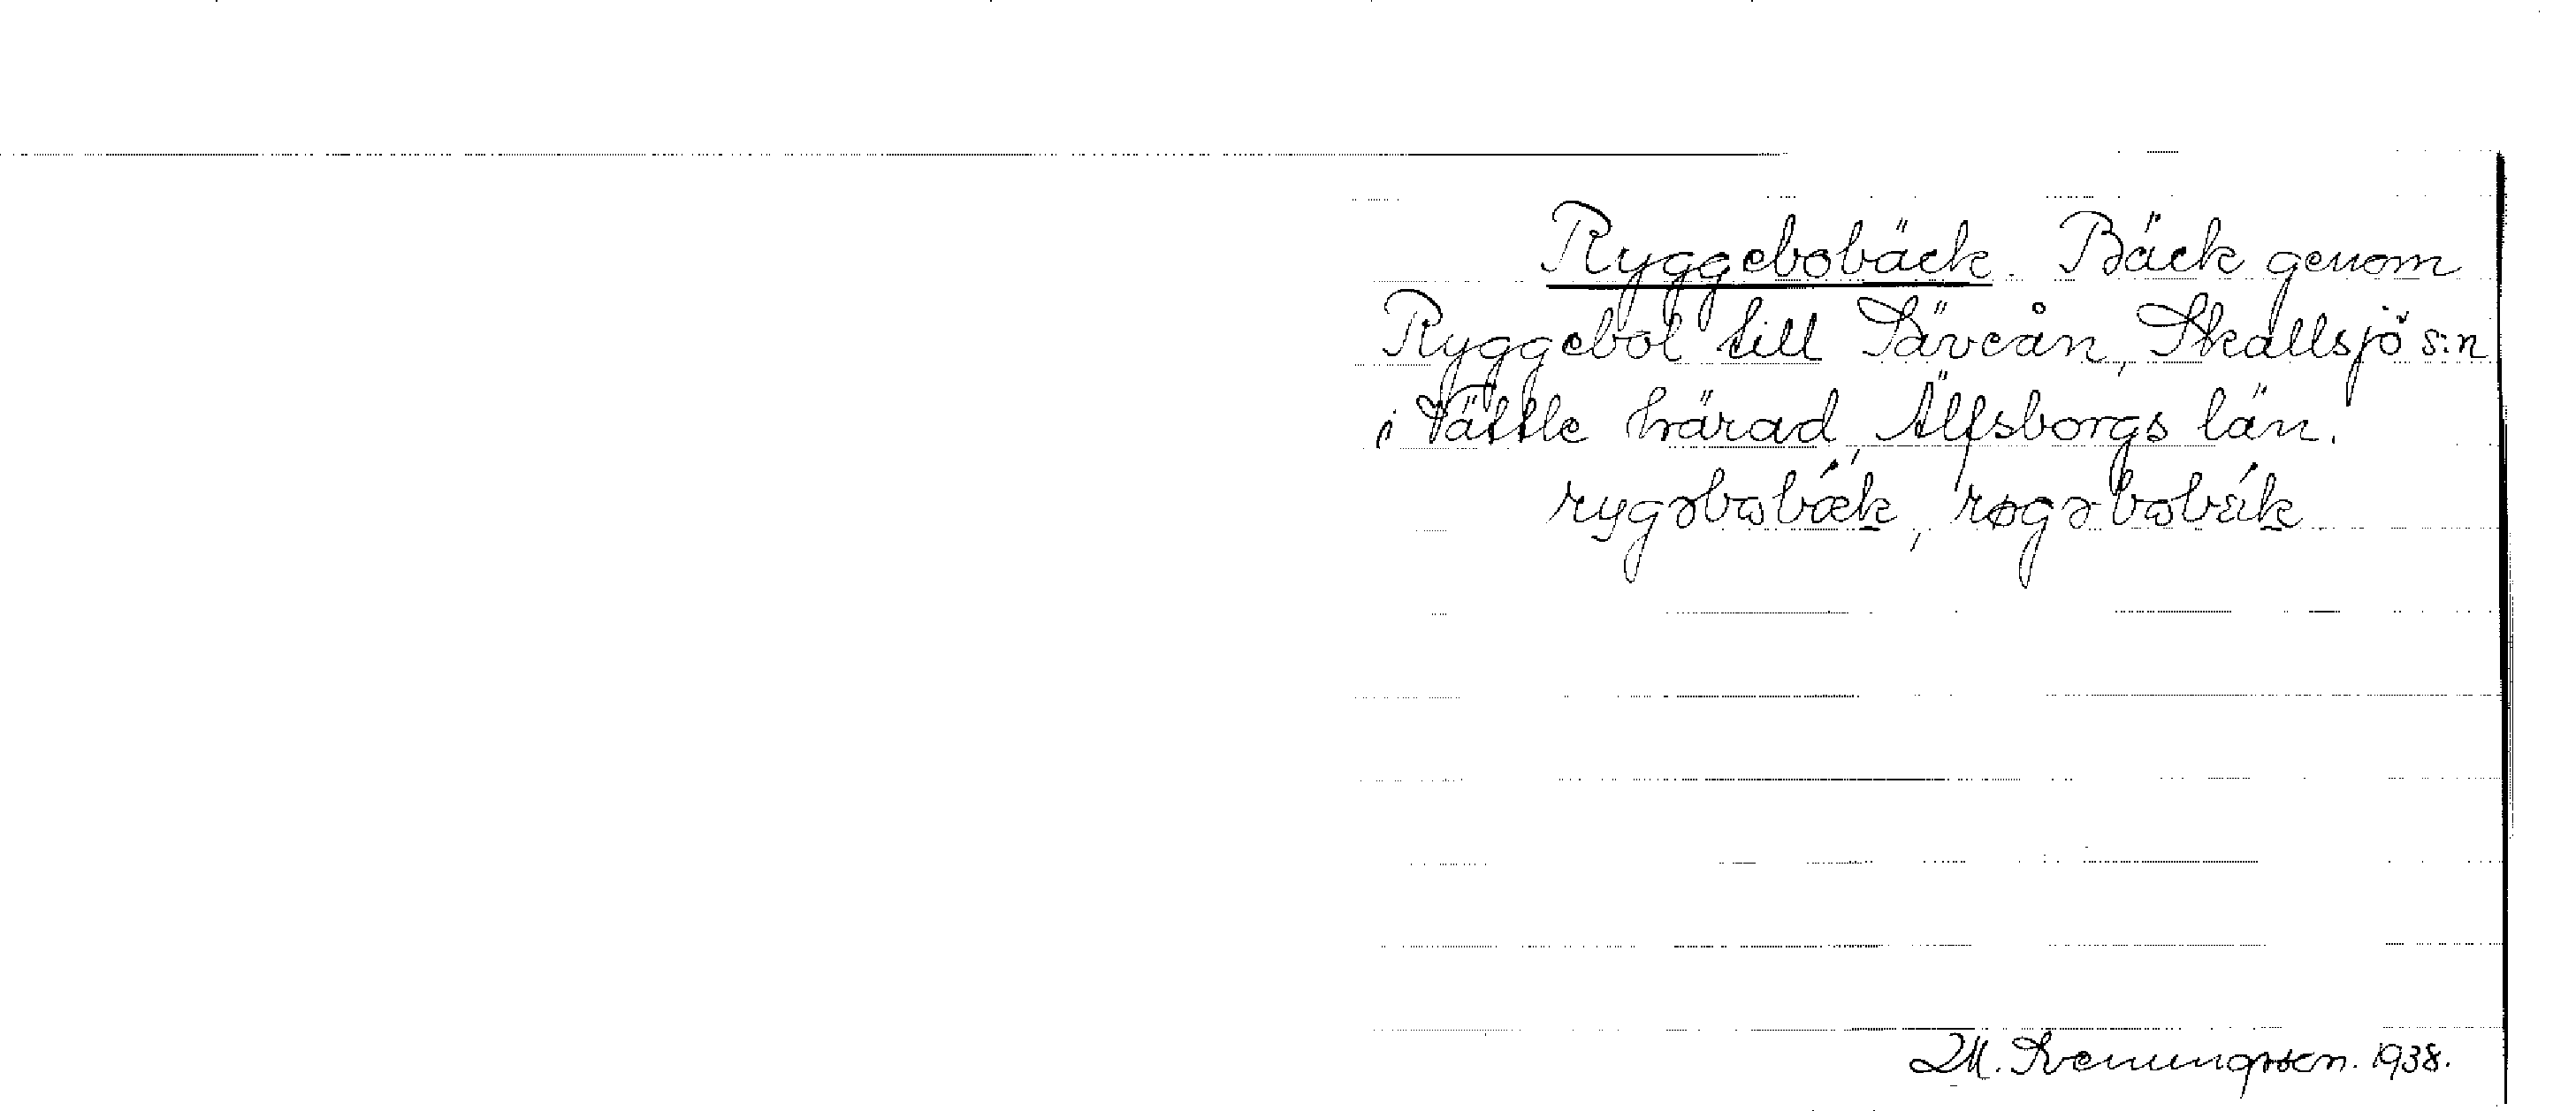 Ryggebobäck. Bäck genom
Ryggebol till Säveån, Skallsjö s:n
i Vättle härad, Älfsborgs län.
rygəbobæ´k, røgəbobä´k
M. Svenungsson. 1938.